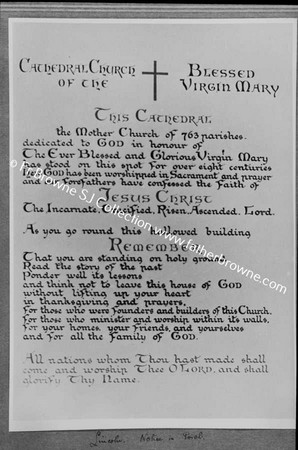 Cathedral Church Blessed
of the Virgin Mary
This Cathedral
the Mother Church of 763 parishes,
dedicated to GOD in honour of
The Ever Blessed and Glorious Virgin Mary
has stood on this spot for over eight centuries
Here GOD has been worshipped in Sacrament and prayer
and our forefathers have confessed the faith of
Jesus Christ
The Incarnate, Crucified, Risen, Ascended, Lord.
As you go round this hallowed building
Remember
That you are standing on holy ground
Read the story of the past
Ponder well its lessons
and think not to leave this house of GOD
without lifting up your heart
in thanksgiving and prayers,
for those who were founders and builders of this Church,
for those who minister and worship within its walls,
for your homes, your friends, and yourselves
and for all the Family of GOD.
All nations whom Thou hast made shall
come and worship Thee O LORD, and shall
glorify Thy Name.
© Fr Browne S.J. Collection, www.fatherbrowne.com
Lincoln. Notice in